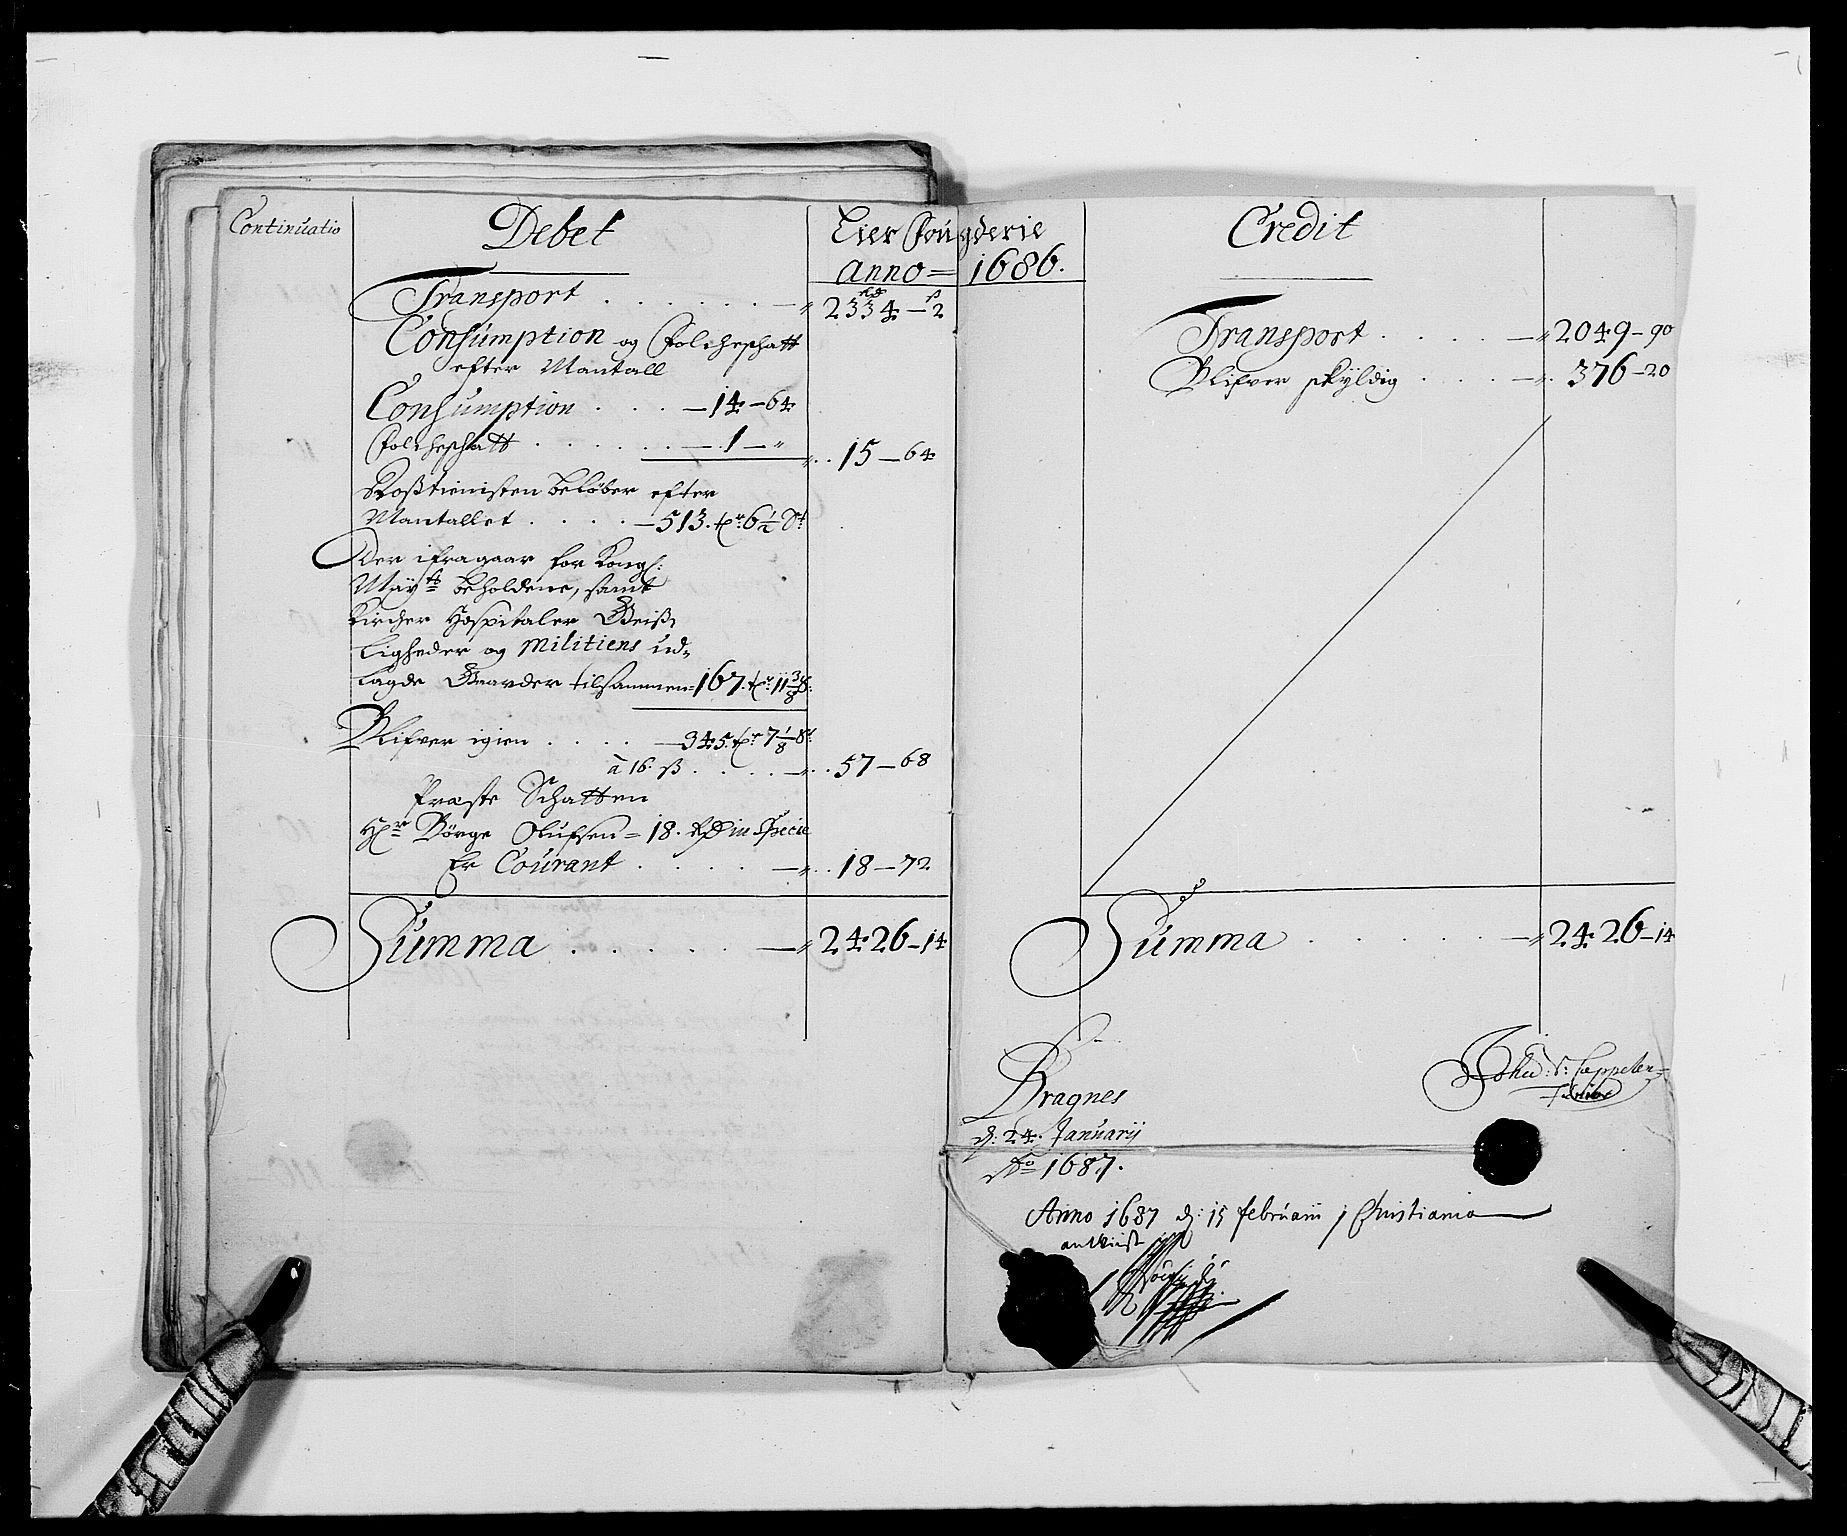 Continuatio
Debet
Lier Fougderie
Anno = 1686.
Transport . . . . . . 2334 - 2
Consumption og Folcheschatt
efter Mantall
Consumption . . . - 14 - 64
Folcheschatt . . . . . - 1 - " . . 15 - 64
Roßtienisten beløber efter
Mantallet . . . . - 513. 6 1/2
Der ifragaar for Kongl:
Mayts beholdene, samt
Kircher Hospitaler Geist
ligheder og Militiens ud-
lagde Gaarder tilsammen - 167. 11 3/8
Blifver igien . . . . - 345. 7 1/8
a 16. ß . . . . . 57 - 68
Præste Schatten
Hr Børge Olufsen = 18. Rd in Specie
Er Courant . . . . . 18 - 72
Summa . . . . . . 2426 - 14
Credit
Transport . . . . . 2049 - 90
Blifver skyldig . . . . 376 - 20
Summa . . . . . . 2426 - 14
Bragnes
d: 24. Januarij
Ao 1687.
John: V: Cappelen
Anno 1687 d: 15 februarii j Christiania